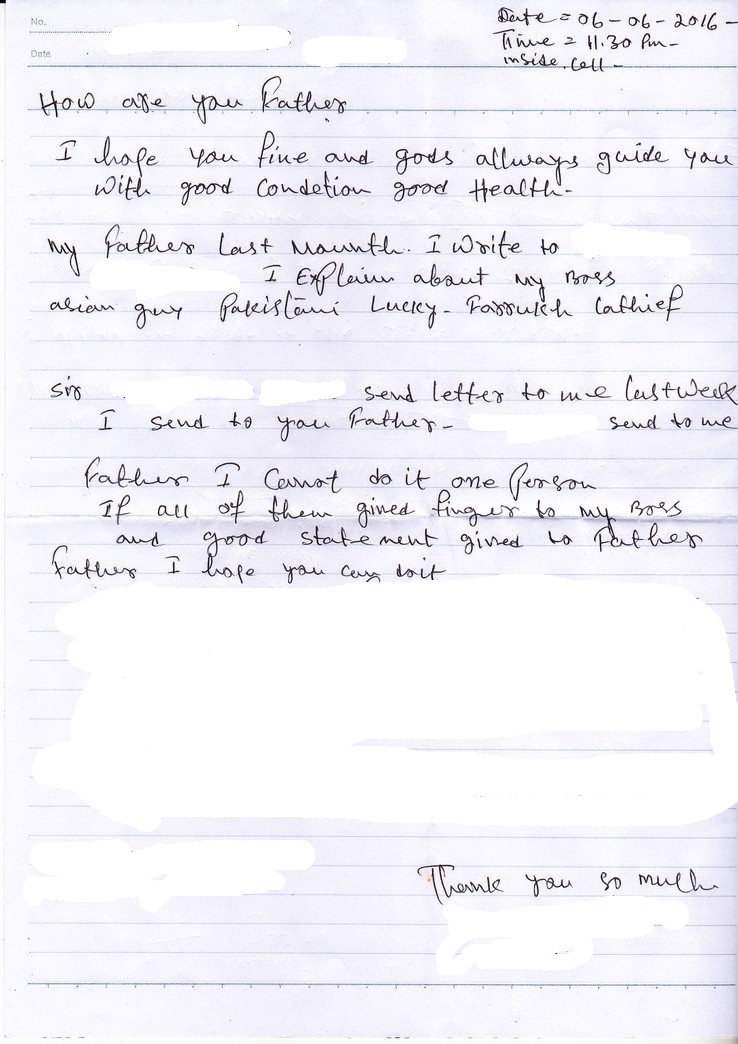 No.
Date
Date = 06-06-2016-
Time = 11.30 Pm-
inside.cell-
How are you Father
I hope you fine and gods allways guide you
with good Condetion good Health-
my Father Last Mounth. I write to
I Explain about my Boss
asian guy Pakistani Lucky- Farrukh Lathief
sir send letter to me last week
I send to you Father- send to me
Father I Cannot do it one Person
If all of them gived finger to my Boss
and good statement gived to Father
Father I hope you can doit
Thank you so much.